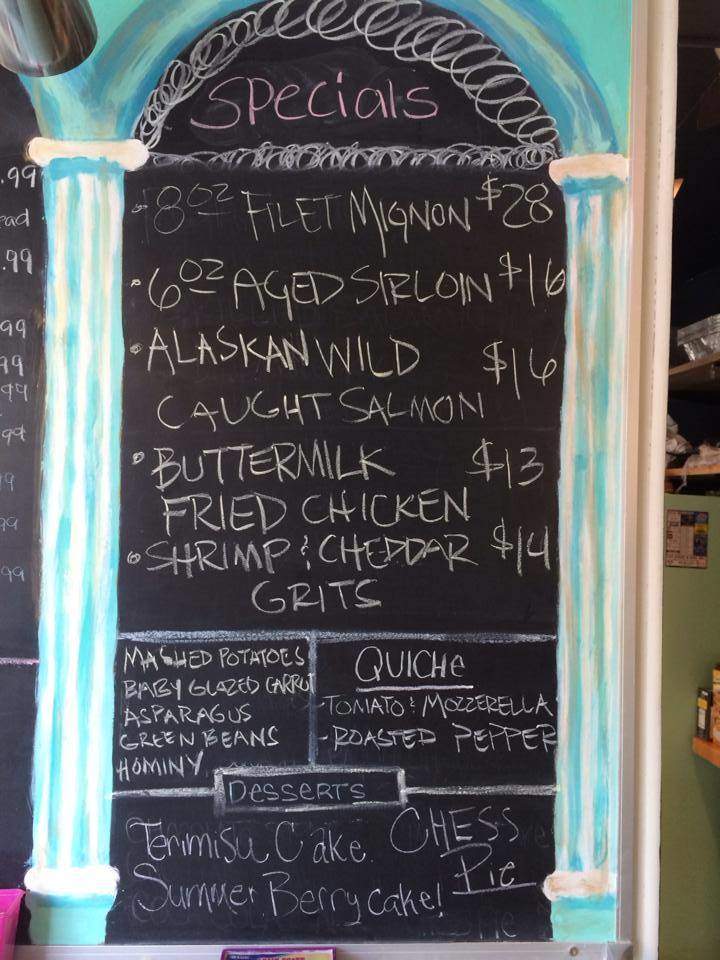 Specials
• 8oz FILET MIGNON $28
• 6oz AGED SIRLOIN $16
• ALASKAN WILD $16
CAUGHT SALMON
• BUTTERMILK $13
FRIED CHICKEN
• SHRIMP & CHEDDAR $14
GRITS
MASHED POTATOES
BABY GLAZED CARROT
ASPARAGUS
GREEN BEANS
HOMINY
QUICHE
-TOMATO & MOZZERELLA
-ROASTED PEPPER
DESSERTS
Terimisu Cake.
Summer Berry cake!
CHESS
Pie
.99
ead
.99
.99
.99
.99
.99